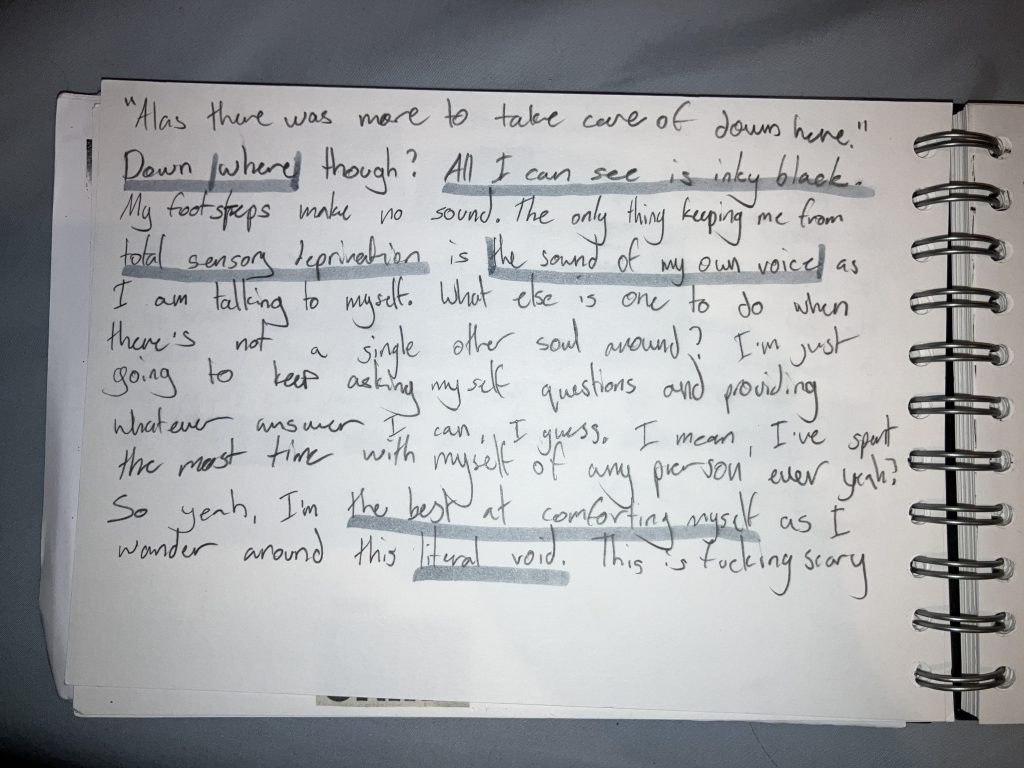 "Alas there was more to take care of down here."
Down where though? All I can see is inky black.
My footsteps make no sound. The only thing keeping me from
total sensory deprivation is the sound of my own voice as
I am talking to myself. What else is one to do when
there's not a single other soul around? I'm just
going to keep asking myself questions and providing
whatever answer I can, I guess. I mean, I've spent
the most time with myself of any person ever yeah?
So yeah, I'm the best at comforting myself as I
wander around this literal void. This is fucking scary